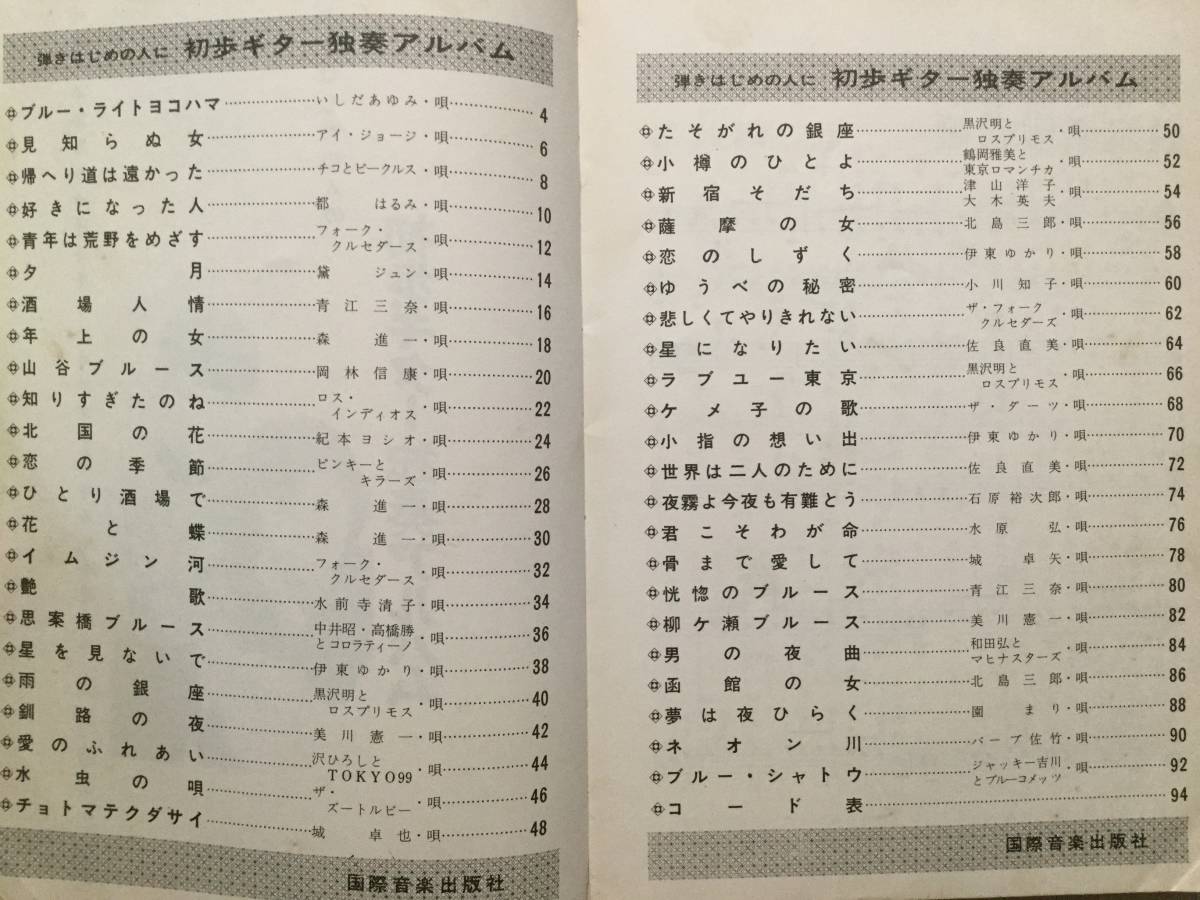 弾きはじめの人に 初歩ギター独奏アルバム
ブルー・ライトヨコハマ いしだあゆみ・唄 4
見知らぬ女 アイ・ジョージ・唄 6
帰へり道は遠かった チコとビークルス・唄 8
好きになった人 都はるみ・唄 10
青年は荒野をめざす フォーク・クルセダース・唄 12
夕月 黛ジュン・唄 14
酒場人情 青江三奈・唄 16
年上の女 森進一・唄 18
山谷ブルース 岡林信康・唄 20
知りすぎたのね ロス・インディオス・唄 22
北国の花 紀本ヨシオ・唄 24
恋の季節 ピンキーとキラーズ・唄 26
ひとり酒場で 森進一・唄 28
花と蝶 森進一・唄 30
イムジン河 フォーク・クルセダース・唄 32
艶歌 水前寺清子・唄 34
思案橋ブルース 中井昭・高橋勝とコロラティーノ・唄 36
星を見ないで 伊東ゆかり・唄 38
雨の銀座 黒沢明とロスプリモス・唄 40
釧路の夜 美川憲一・唄 42
愛のふれあい 沢ひろしとTOKYO99・唄 44
水虫の唄 ザ・ズートルビー・唄 46
チョトマテクダサイ 城卓也・唄 48
国際音楽出版社
弾きはじめの人に 初歩ギター独奏アルバム
たそがれの銀座 黒沢明とロスプリモス・唄 50
小樽のひとよ 鶴岡雅美と東京ロマンチカ・唄 52
新宿そだち 津山洋子 大木英夫・唄 54
薩摩の女 北島三郎・唄 56
恋のしずく 伊東ゆかり・唄 58
ゆうべの秘密 小川知子・唄 60
悲しくてやりきれない ザ・フォーククルセダーズ・唄 62
星になりたい 佐良直美・唄 64
ラブユー東京 黒沢明とロスプリモス・唄 66
ケメ子の歌 ザ・ダーツ・唄 68
小指の想い出 伊東ゆかり・唄 70
世界は二人のために 佐良直美・唄 72
夜霧よ今夜も有難とう 石原裕次郎・唄 74
君こそわが命 水原弘・唄 76
骨まで愛して 城卓矢・唄 78
恍惚のブルース 青江三奈・唄 80
柳ケ瀬ブルース 美川憲一・唄 82
男の夜曲 和田弘とマヒナスターズ・唄 84
函館の女 北島三郎・唄 86
夢は夜ひらく 園まり・唄 88
ネオン川 バーブ佐竹・唄 90
ブルー・シャトウ ジャッキー吉川とブルーコメッツ・唄 92
コード表 94
国際音楽出版社